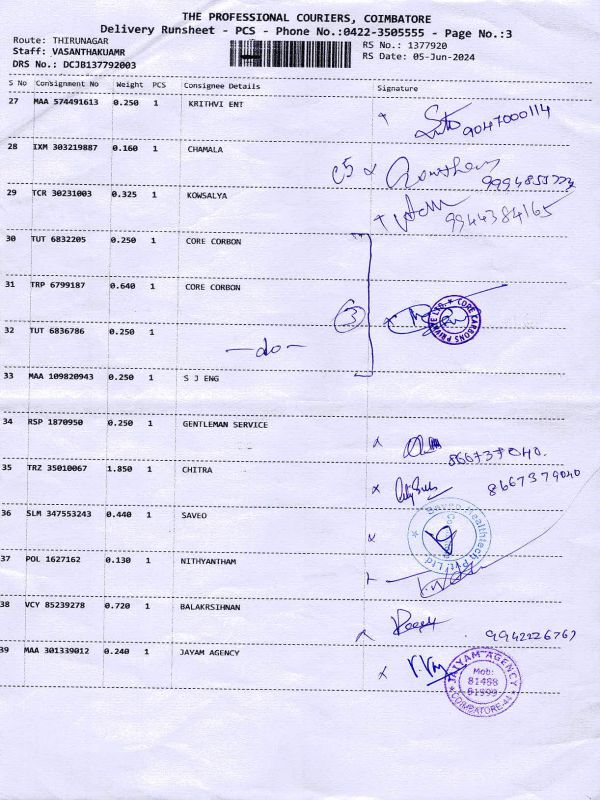 THE PROFESSIONAL COURIERS, COIMBATORE
Delivery Runsheet - PCS - Phone No.:0422-3505555 - Page No.:3
Route: THIRUNAGAR
Staff: VASANTHAKUAMR
DRS No.: DCJB137792003
RS No.: 1377920
RS Date: 05-Jun-2024
S No Consignment No Weight PCS Consignee Details Signature
27 MAA 574491613 0.250 1 KRITHVI ENT
9047000114
28 IXM 303219887 0.160 1 CHAMALA
29 TCR 30231003 0.325 1 KOWSALYA
9944384165
30 TUT 6832205 0.250 1 CORE CORBON
31 TRP 6799187 0.640 1 CORE CORBON
3
CORE KARBONS PRIVATE LTD. *
32 TUT 6836786 0.250 1
—do—
33 MAA 109820943 0.250 1 S J ENG
34 RSP 1870950 0.250 1 GENTLEMAN SERVICE
35 TRZ 35010067 1.850 1 CHITRA
8667379040
36 SLM 347553243 0.440 1 SAVEO
Healthtech Pvt Ltd
37 POL 1627162 0.130 1 NITHYANTHAM
38 VCY 85239278 0.720 1 BALAKRSIHNAN
39 MAA 301339012 0.240 1 JAYAM AGENCY
JAYAM AGENCY
Mob:
COIMBATORE-44